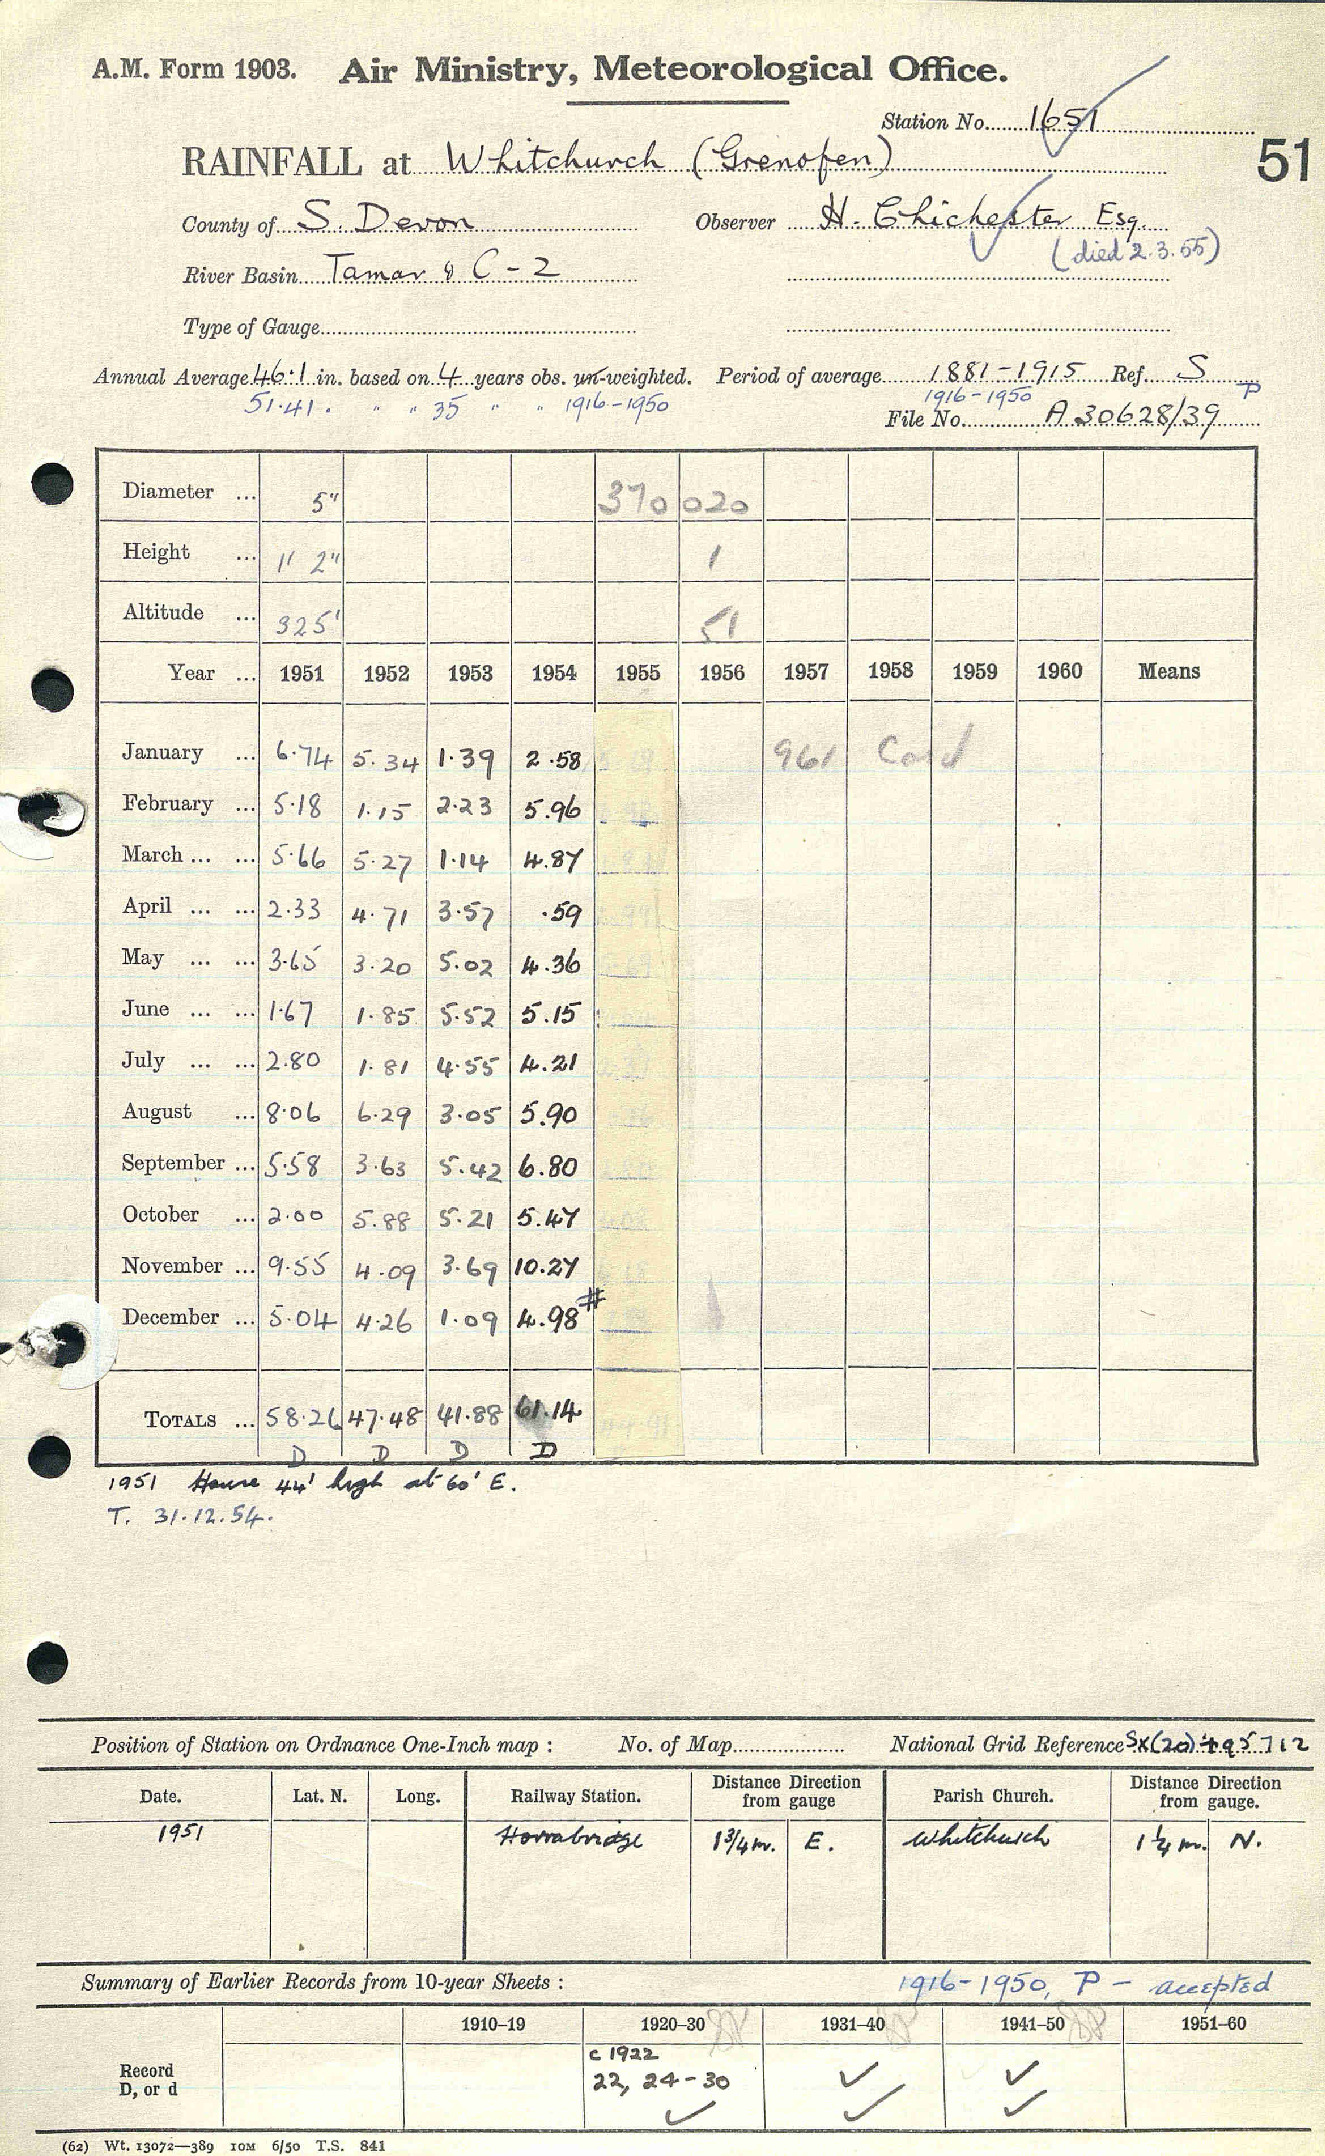 A.M. Form 1903. Air Ministry, Meteorological Office.
Station No. 1651
51
RAINFALL at Whitchurch (Grenofen)
County of S. Devon Observer H. Chichester Esq.
(died 2.3.55)
River Basin Tamar & C-2
Type of Gauge
Annual Average 46.1 in. based on 4 years obs. un-weighted. Period of average 1881-1915 Ref. S
51.41. " " 35 " " 1916-1950 1916-1950 P
File No. A 30628/39
Diameter ... 5" 370 020
Height ... 1' 2" 1
Altitude ... 325' 51
Year ... 1951 1952 1953 1954 1955 1956 1957 1958 1959 1960 Means
January ... 6.74 5.34 1.39 2.58 961 Card
February ... 5.18 1.15 2.23 5.96
March ... ... 5.66 5.27 1.14 4.87
April ... ... 2.33 4.71 3.57 .59
May ... ... 3.65 3.20 5.02 4.36
June ... ... 1.67 1.85 5.52 5.15
July ... ... 2.80 1.81 4.55 4.21
August ... 8.06 6.29 3.05 5.90
September ... 5.58 3.63 5.42 6.80
October ... 2.00 5.88 5.21 5.47
November ... 9.55 4.09 3.69 10.27
December ... 5.04 4.26 1.09 4.98 #
TOTALS ... 58.26 47.48 41.88 61.14
D D D D
1951 House 44' high at 60' E.
T. 31.12.54.
Position of Station on Ordnance One-Inch map : No. of Map National Grid Reference SX(20) 495712
Date. Lat. N. Long. Railway Station. Distance from gauge Direction Parish Church. Distance from gauge. Direction
1951 Horrabridge 1¾ m. E. Whitchurch 1¼ m. N.
Summary of Earlier Records from 10-year Sheets : 1916-1950, P - accepted
1910–19 1920–30 1931–40 1941–50 1951–60
Record D, or d
c 1922
22, 24-30
(62) Wt. 13072—389 10M 6/50 T.S. 841